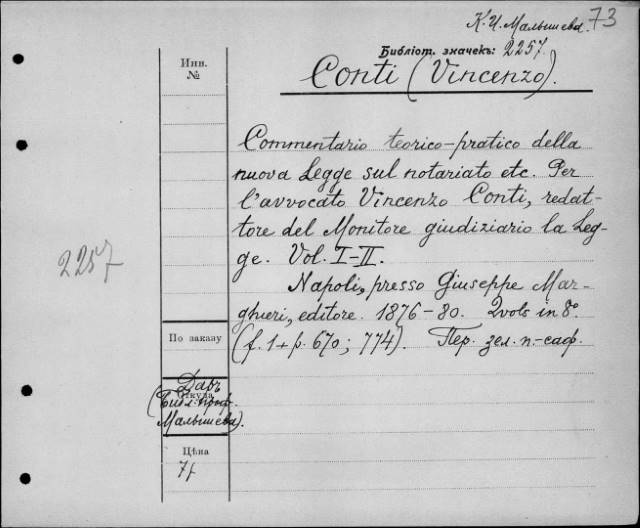 К. И. Малышева.
73
Библіот. значекъ: 2257.
Инв.
№
Conti (Vincenzo).
Commentario teorico-pratico della
nuova Legge sul notariato etc. Per
l'avvocato Vincenzo Conti, redat-
tore del Monitore giudiziario la Leg-
ge. Vol. I-II.
2257
Napoli, presso Giuseppe Mar-
ghieri, editore. 1876-80. 2 vols in 8°
(f. 1 + p. 670; 774). Пер. зел. п.-саф.
По заказу
Даръ
Откуда
(Библ. проф.
Малышева).
Цѣна